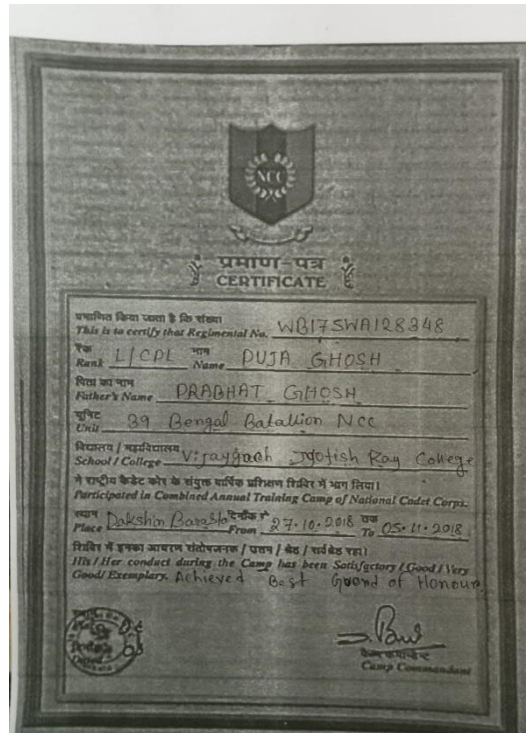 NCC
प्रमाण-पत्र
CERTIFICATE
प्रमाणित किया जाता है कि संख्या
This is to certify that Regimental No. WB17SWA128348
रैंक L/CPL नाम PUJA GHOSH
Rank Name
पिता का नाम
Father's Name PRABHAT GHOSH
यूनिट
Unit 39 Bengal Batallion NCC
विद्यालय / महाविद्यालय
School / College Vijaygarh Jyotish Ray College
ने राष्ट्रीय कैडेट कोर के संयुक्त वार्षिक प्रशिक्षण शिविर में भाग लिया।
Participated in Combined Annual Training Camp of National Cadet Corps.
स्थान दिनाँक से तक
Place Dakshin Barasto From 27.10.2018 To 05.11.2018
शिविर में इनका आचरण संतोषजनक / उत्तम / श्रेष्ठ / सर्वश्रेष्ठ रहा।
His / Her conduct during the Camp has been Satisfactory / Good / Very
Good / Exemplary. Achieved Best Guond of Honour.
कैम्प कमान्डेन्ट
Camp Commandant